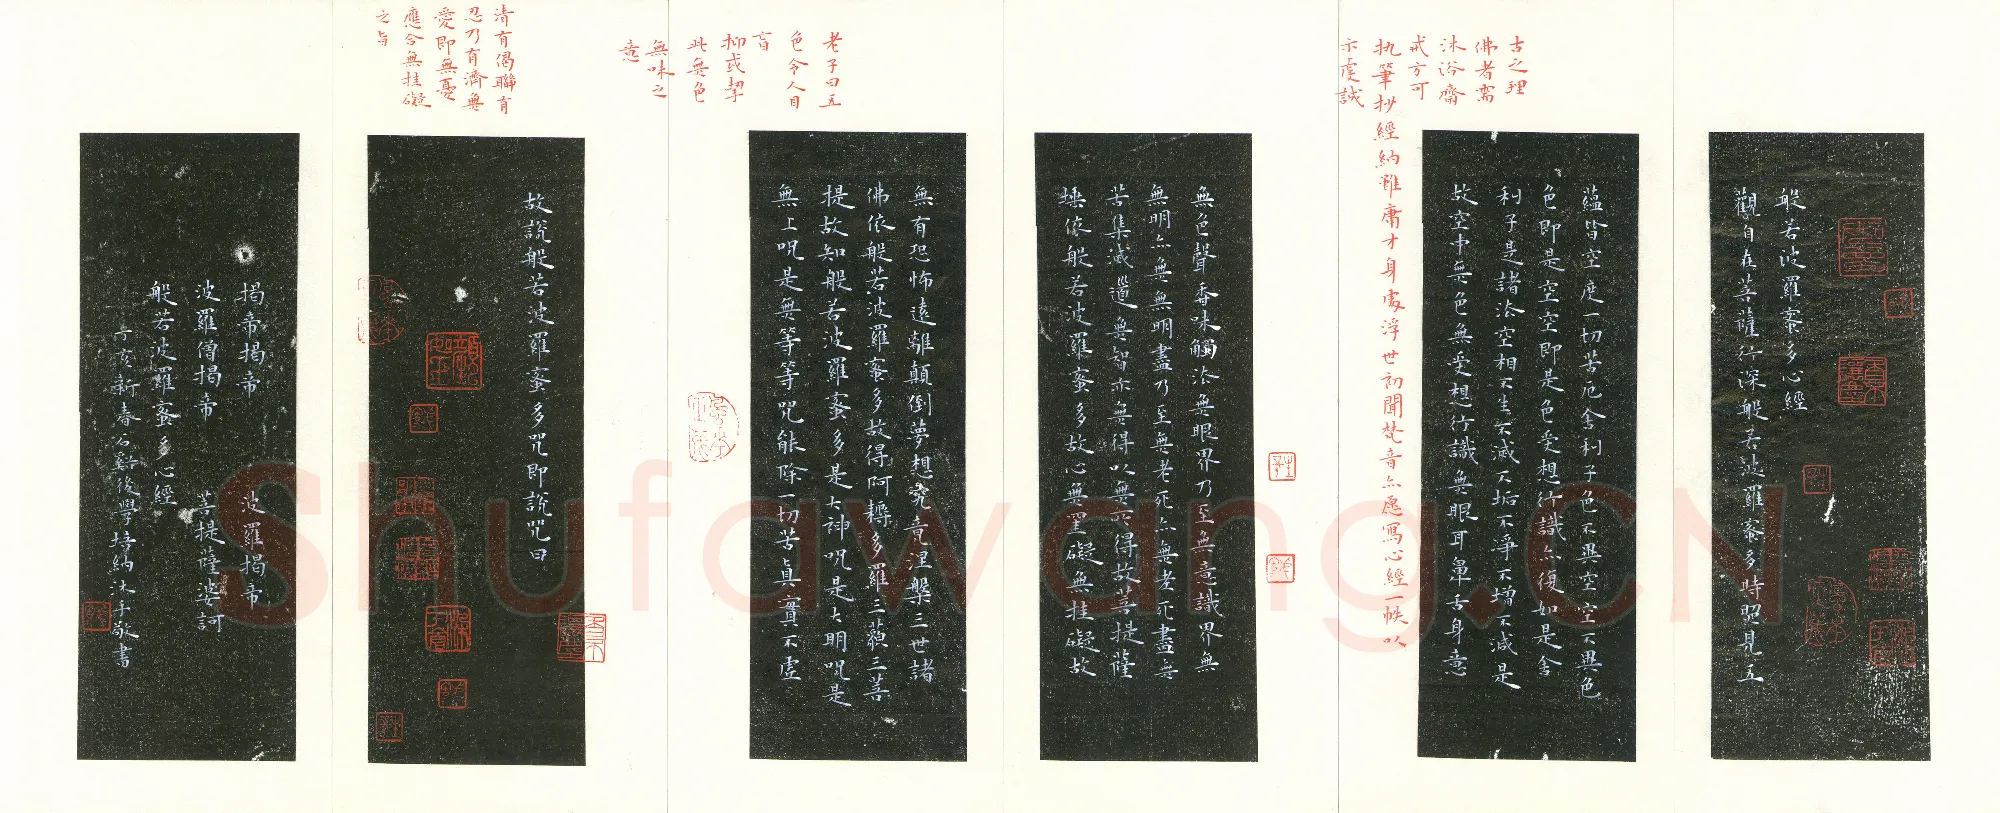 般若波羅蜜多心經
觀自在菩薩行深般若波羅蜜多時照見五
蘊皆空度一切苦厄舍利子色不異空空不異色
色即是空空即是色受想行識亦復如是舍
利子是諸法空相不生不滅不垢不淨不增不減是
故空中無色無受想行識無眼耳鼻舌身意
古之理
佛者需
沐浴齋
戒方可
执筆抄經納雖庸才身處浮世初聞梵音亦愿寫心經一帙以
示虔誠
無色聲香味觸法無眼界乃至無意識界無
無明亦無無明盡乃至無老死亦無老死盡無
苦集滅道無智亦無得以無所得故菩提薩
埵依般若波羅蜜多故心無罣礙無挂礙故
老子曰五
色令人目
盲
抑或挈
此無色
無味之
意
無有恐怖遠離顛倒夢想究竟涅槃三世諸
佛依般若波羅蜜多故得阿耨多羅三藐三菩
提故知般若波羅蜜多是大神咒是大明咒是
無上咒是無等等咒能除一切苦真實不虛
清有偈聯有
忍乃有濟無
愛即無憂
應合無挂礙
之旨
故說般若波羅蜜多咒即說咒曰
揭帝揭帝 波羅揭帝
波羅僧揭帝 菩提薩婆訶
般若波羅蜜多心經
亥新春石谿後學培納沐手敬書
Shufawang.CN